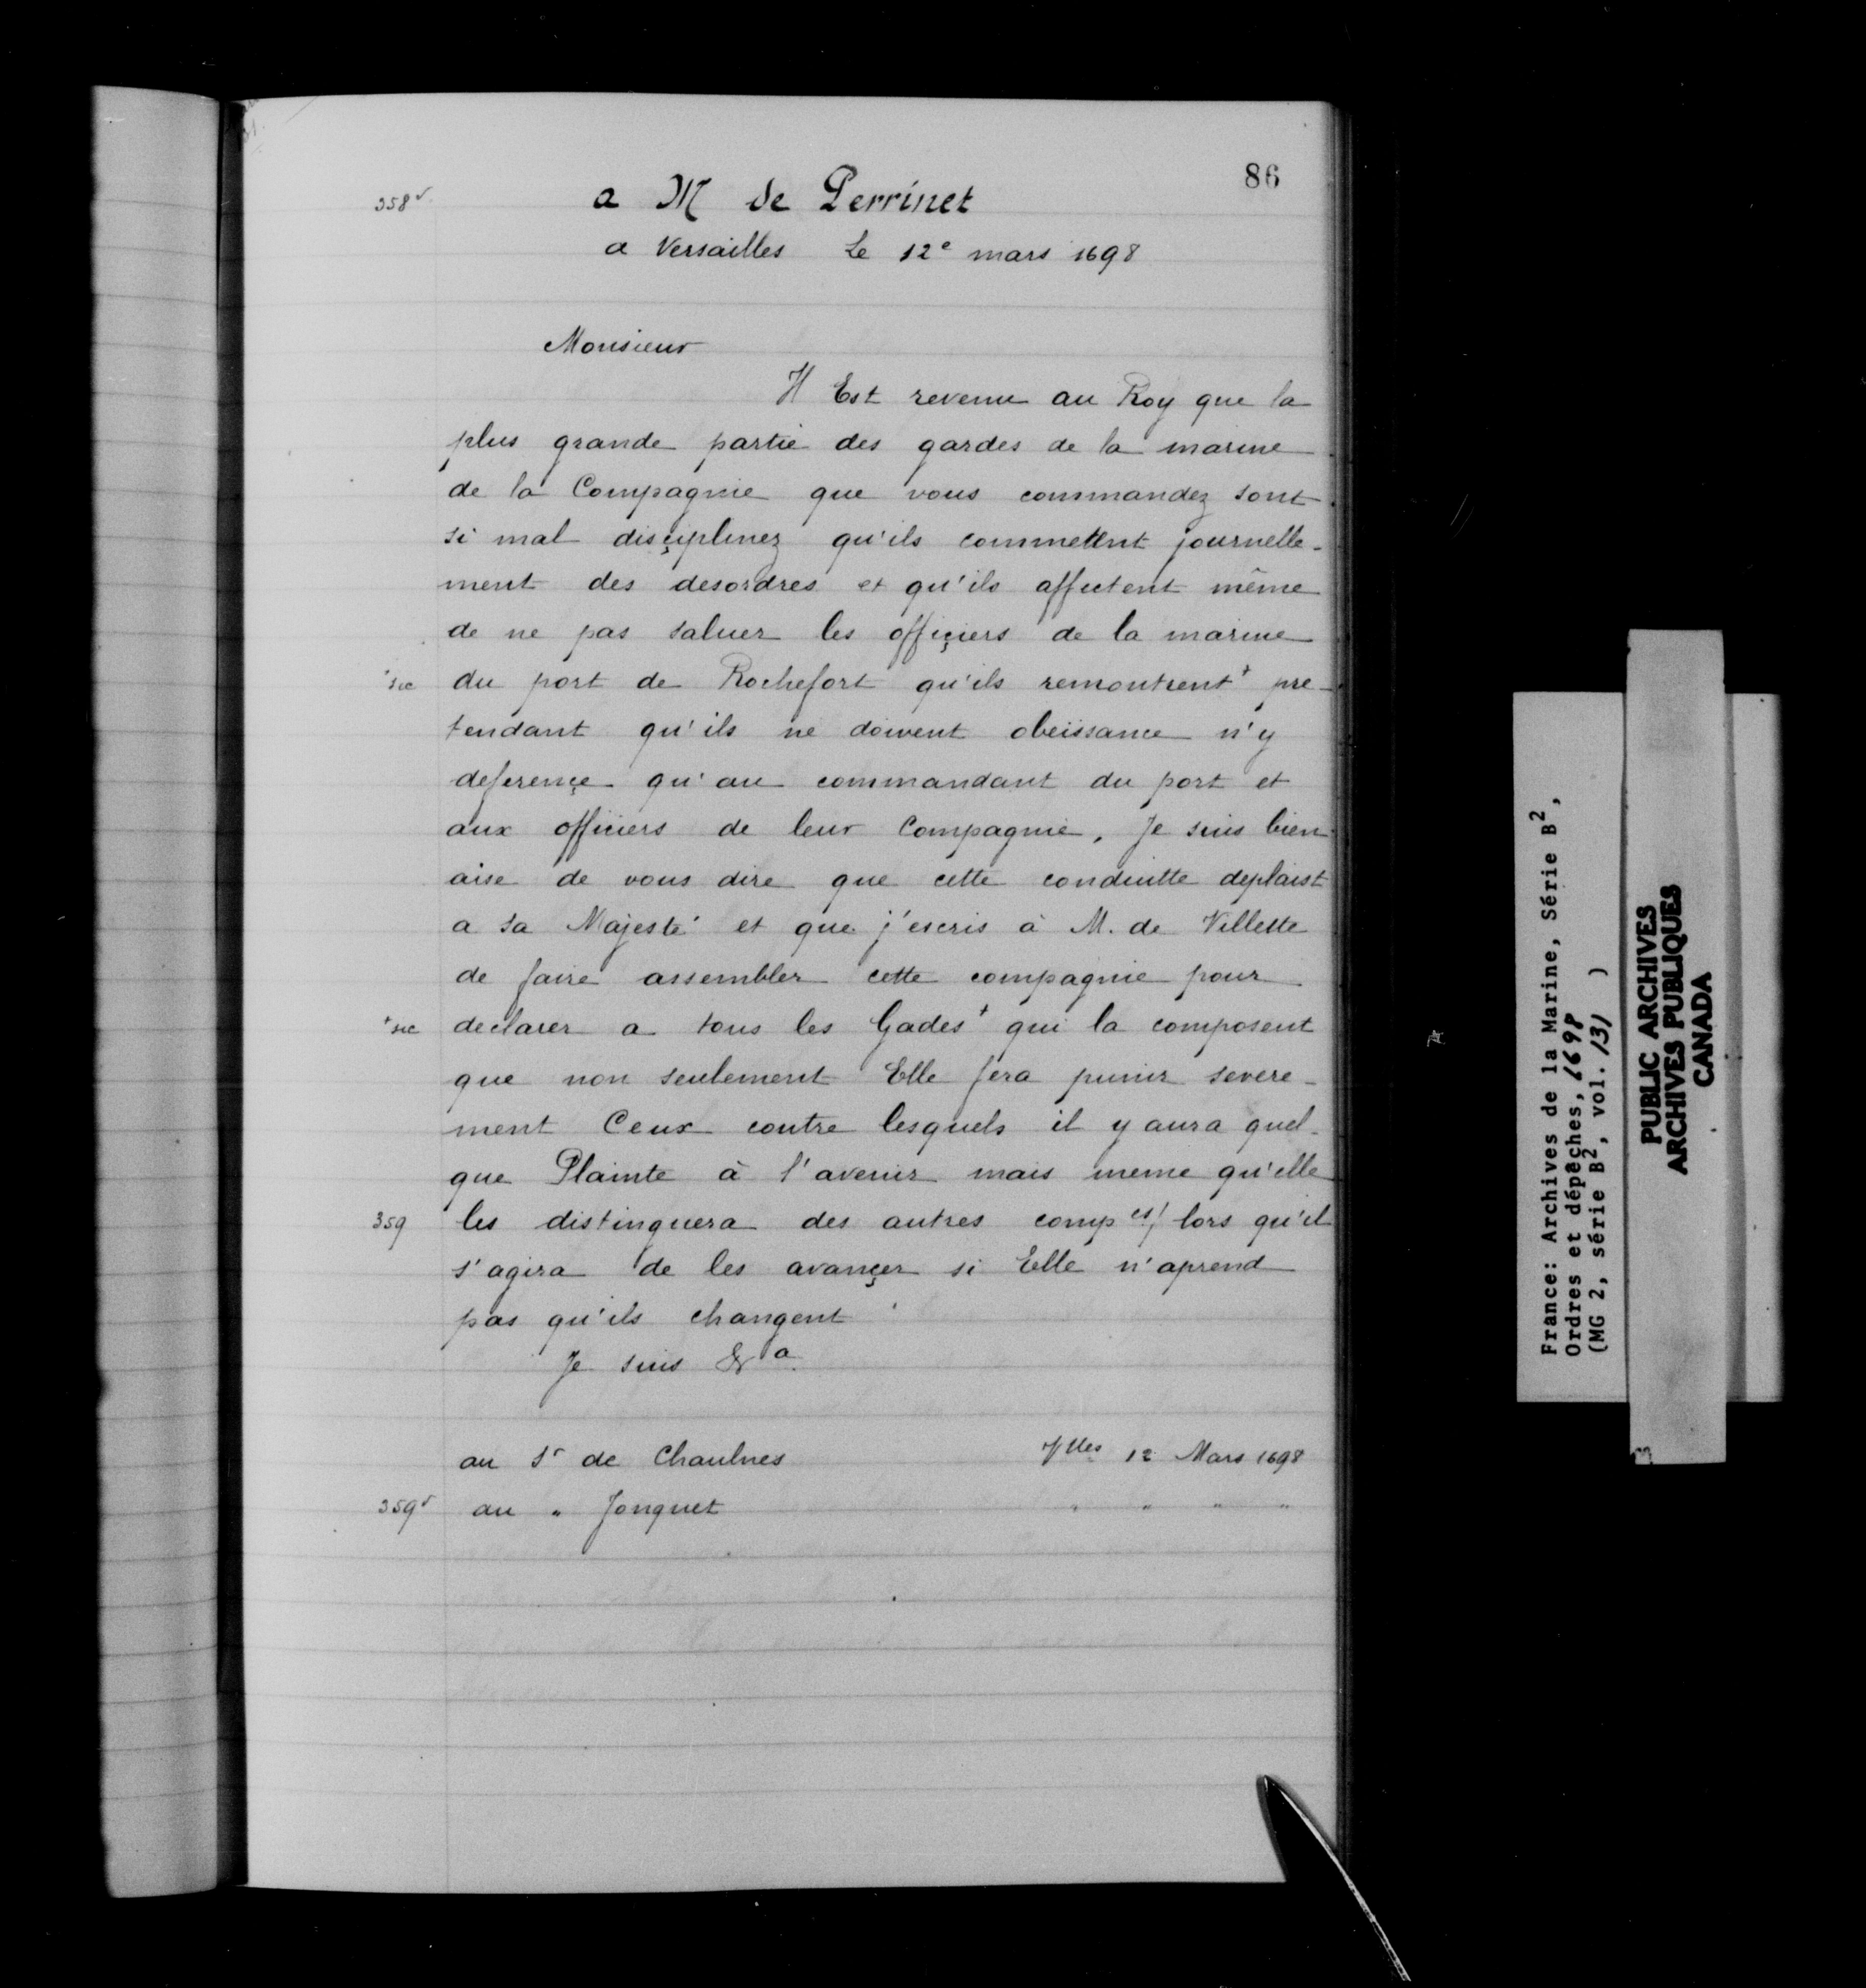 86
358v
a M de Perrinet
a Versailles Le 12e mars 1698
Monsieur
Il Est revenu au Roy que la
plus grande partie des gardes de la marine
de la Compagnie que vous commandez sont
si mal disçiplinez qu'ils commettent journelle-
ment des desordres et qu'ils affectent même
de ne pas saluer les offiçiers de la marine
+sic du port de Rochefort qu'ils remontrent+ pre-
tendant qu'ils ne doivent obeissance n'y
deferençe qu'au commandant du port et
aux officiers de leur Compagnie. Je suis bien
aise de vous dire que cette conduitte deplaist
a sa Majesté et que j'escris à M. de Villette
de faire assembler cette compagnie pour
+sic declarer a tous les Gades+ qui la composent
que non seulement Elle fera punir severe-
ment Ceux contre lesquels il y aura quel-
que Plainte à l'avenir mais meme qu'elle
359 les distinguera des autres comp es/ lors qu'il
s'agira de les avançer si Elle n'aprend
pas qu'ils changent
Je suis &a
au Sr de Chaulnes Vlles 12 Mars 1698
359v au " Jonquet " " " "
France: Archives de la Marine, Série B2,
Ordres et dépêches, 1698
(MG 2, série B2, vol. 131 )
PUBLIC ARCHIVES
ARCHIVES PUBLIQUES
CANADA